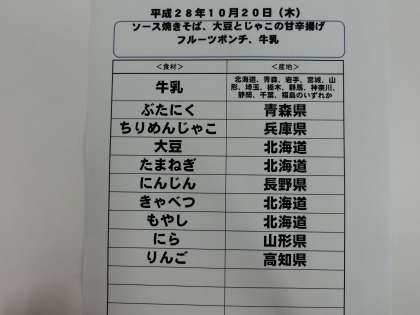 平成28年10月20日（木）
ソース焼きそば、大豆とじゃこの甘辛揚げ
フルーツポンチ、牛乳
＜食材＞ ＜産地＞
牛乳 北海道、青森、岩手、宮城、山
形、埼玉、栃木、群馬、神奈川、
静岡、千葉、福島のいずれか
ぶたにく 青森県
ちりめんじゃこ 兵庫県
大豆 北海道
たまねぎ 北海道
にんじん 長野県
きゃべつ 北海道
もやし 北海道
にら 山形県
りんご 高知県